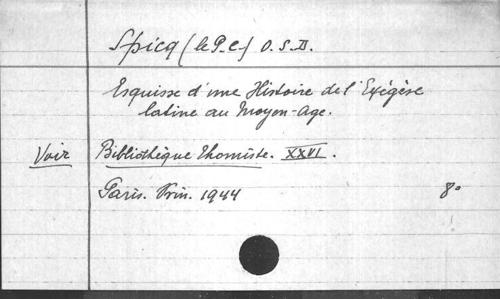 Spicq (le P. C.) O.S.D.
Esquisse d'une Histoire de l'Exégèse
latine au Moyen-Age.
Voir Bibliothèque Thomiste. XXVI.
Paris. Vrin. 1944 8°